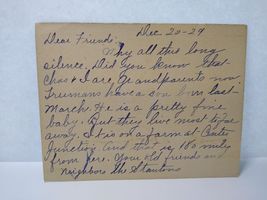 Dec 20-29
Dear Friend:
Why all this long
silence. Did you know that
Chas & I are Grandparents now.
Trumans have a son born last
March. He is a pretty fine
baby. But they live most to far
away. It is on a farm at Center
Junction. And that is 160 miles
from here. Your old friends and
neighbors The Stantons